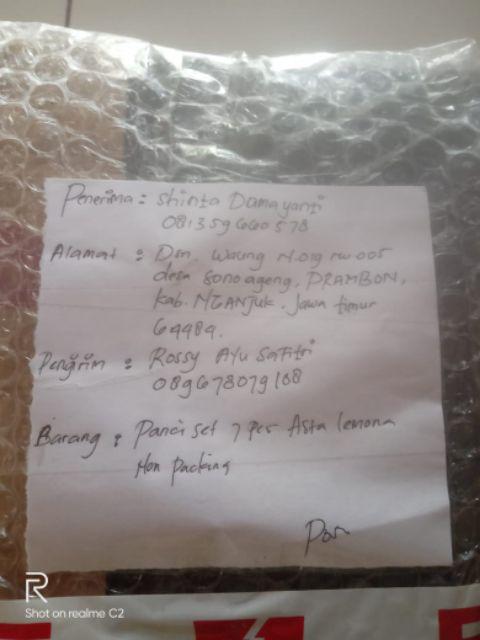 Penerima : Shinta Damayanti
081359660578
Alamat : Dsn. Waung N.019 rw 005
desa Sonoageng, PRAMBON,
Kab. NGANjuk. Jawa timur
64484.
Pengirim : Rossy Ayu Safitri
089678079168
Barang : Panci set 7 pcs Asta lemona
Non packing
Pos
R
Shot on realme C2